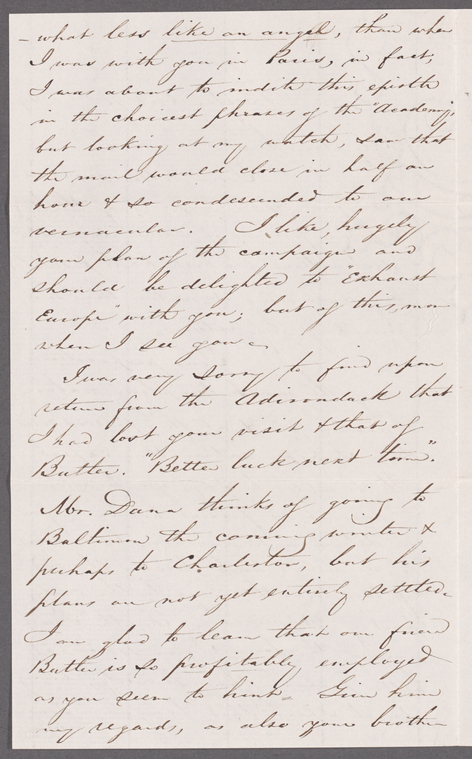 – what less like an angel, than when
I was with you in Paris, in fact,
I was about to indite this epistle
in the choicest phrases of the "Academy",
but looking at my watch, saw that
the mail would close in half an
hour & so condescended to our
vernacular. I like, hugely
your plan of the campaign and
should be delighted to "Exhaust
Europe" with you; but of this, more
when I see you –
I was very sorry to find upon
return from the Adirondack that
I had lost your visit & that of
Butler. "Better luck next time".
Mr. Dana thinks of going to
Baltimore the coming winter &
perhaps to Charleston, but his
plans are not yet entirely settled –
I am glad to learn that our friend
Butler is so profitably employed
as you seem to hint – Give him
my regards, as also your brother